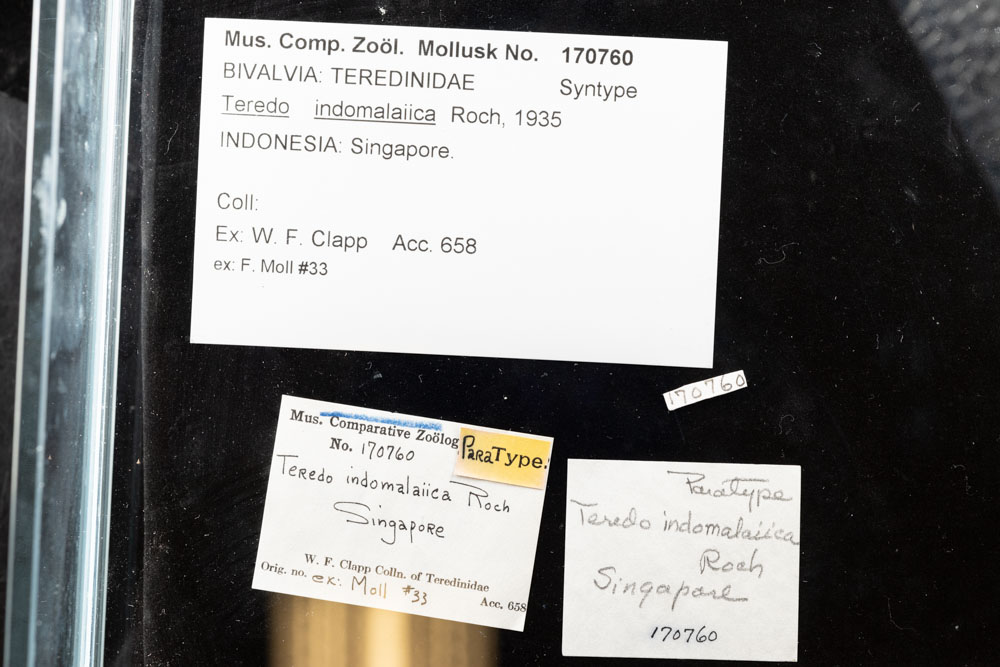 Mus. Comp. Zoöl. Mollusk No. 170760
BIVALVIA: TEREDINIDAE Syntype
Teredo indomalaiica Roch, 1935
INDONESIA: Singapore.
Coll:
Ex: W. F. Clapp Acc. 658
ex: F. Moll #33
170760
Mus. Comparative Zoölog
No. 170760
ParaType.
Teredo indomalaiica Roch
Singapore
W. F. Clapp Colln. of Teredinidae
Orig. no. ex: Moll #33 Acc. 658
Paratype
Teredo indomalaiica
Roch
Singapore
170760